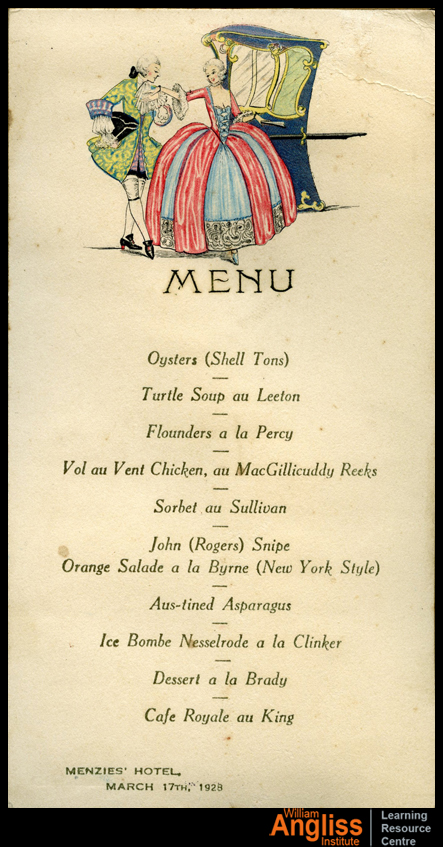 MENU
Oysters (Shell Tons)
Turtle Soup au Leeton
Flounders a la Percy
Vol au Vent Chicken, au MacGillicuddy Reeks
Sorbet au Sullivan
John (Rogers) Snipe
Orange Salade a la Byrne (New York Style)
Aus-tined Asparagus
Ice Bombe Nesselrode a la Clinker
Dessert a la Brady
Cafe Royale au King
MENZIES' HOTEL,
MARCH 17TH, 1928
William
Angliss
Institute
Learning
Resource
Centre